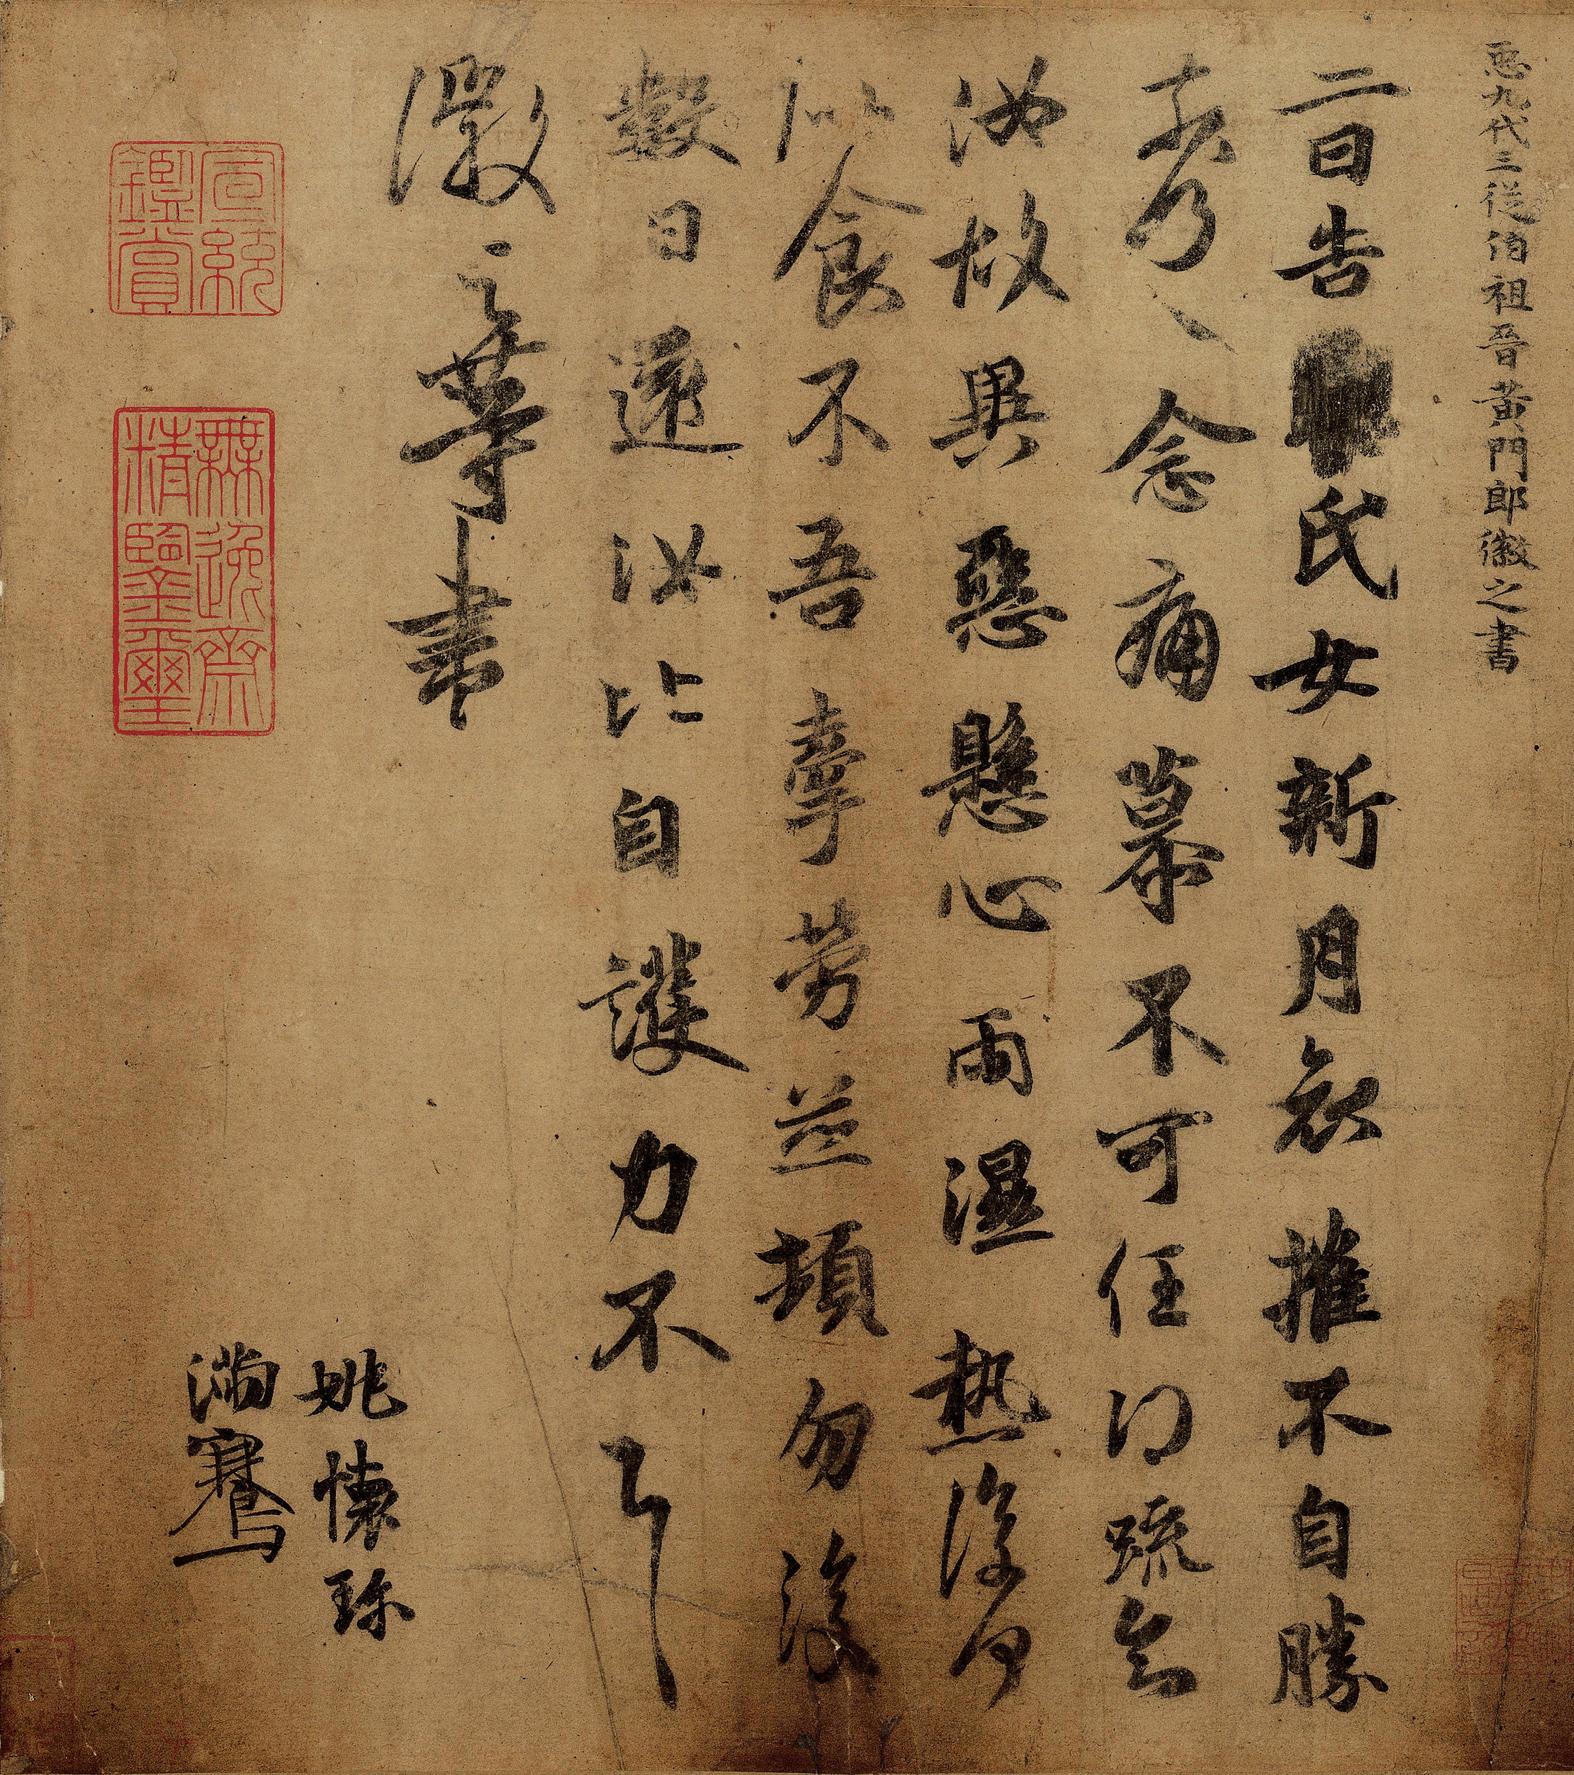 𢘑九代三從伯祖晉黃門郎徽之書
二日告氏女新月哀摧不自勝
奈何〻念痛慕不可任得疏知
汝故異惡懸心雨濕熱復何
似食不吾牽勞並頓勿復
數日還汝比自護力不具
徽之等書
姚懷珍
滿騫
宣統
鑑賞
無逸齋
精鑒璽